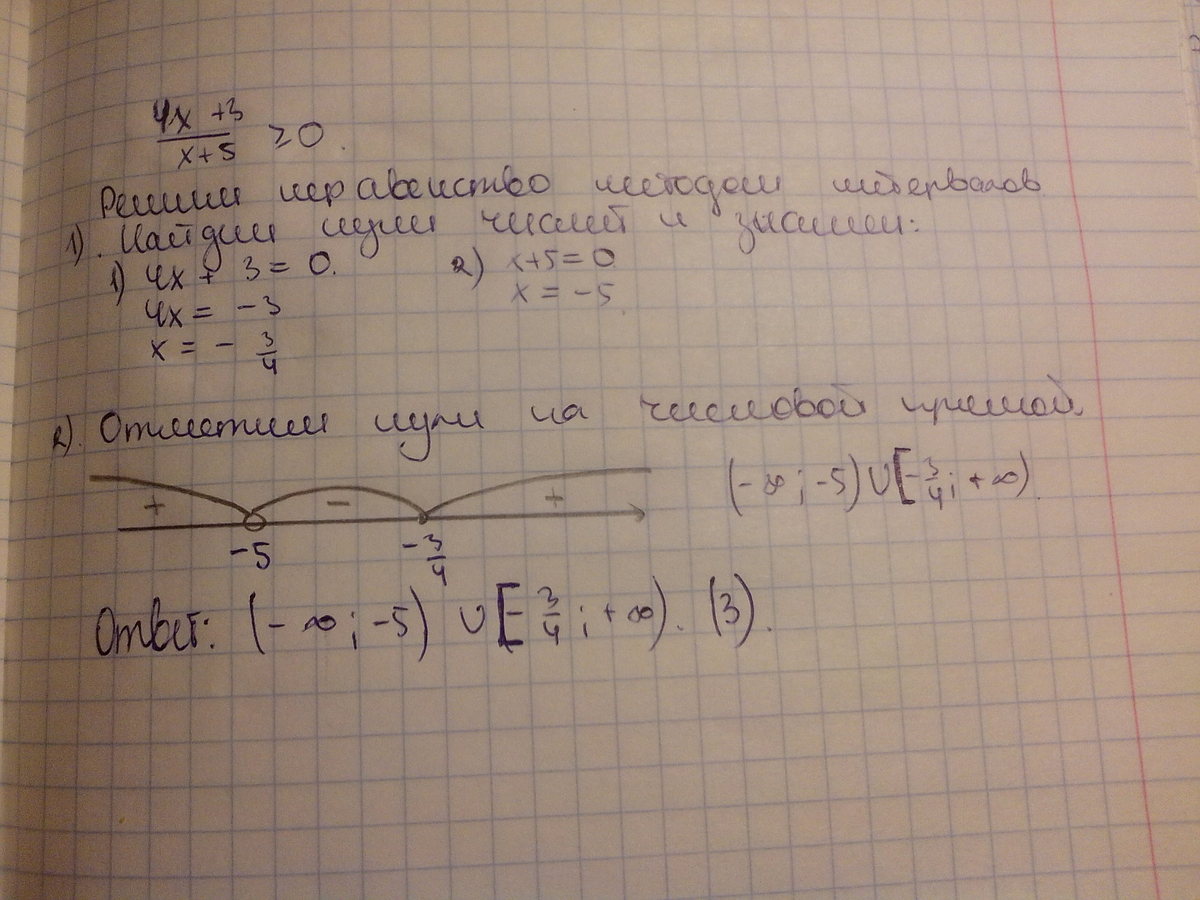 4x + 3
x + 5 ≥ 0.
Решим неравенство методом интервалов
1). Найдем нули числит и знамен:
1) 4x + 3 = 0. 2) x + 5 = 0
4x = - 3 x = - 5
x = - 3/4
2). Отметим нули на числовой прямой.
+ - + (- ∞ ; -5) ∪ [- 3/4 ; + ∞).
-5 - 3/4
Ответ: (- ∞ ; -5) ∪ [- 3/4 ; + ∞). (3).